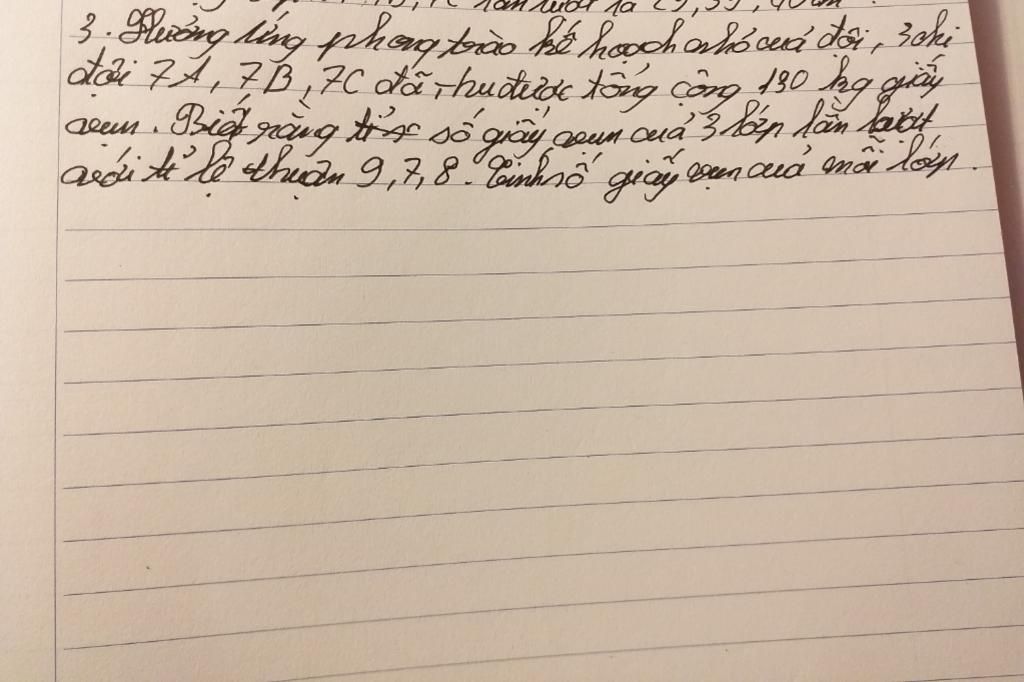 lần lượt là 29, 39, 40 cm.
3. Hưởng ứng phong trào kế hoạch nhỏ cuả đội, 3 chi
đội 7A, 7B, 7C đã thu được tổng cộng 130 kg giấy
vụn. Biết rằng số giấy vụn cuả 3 lớp lần lượt
với tỉ lệ thuận 9, 7, 8. Tính số giấy vụn cuả mỗi lớp.